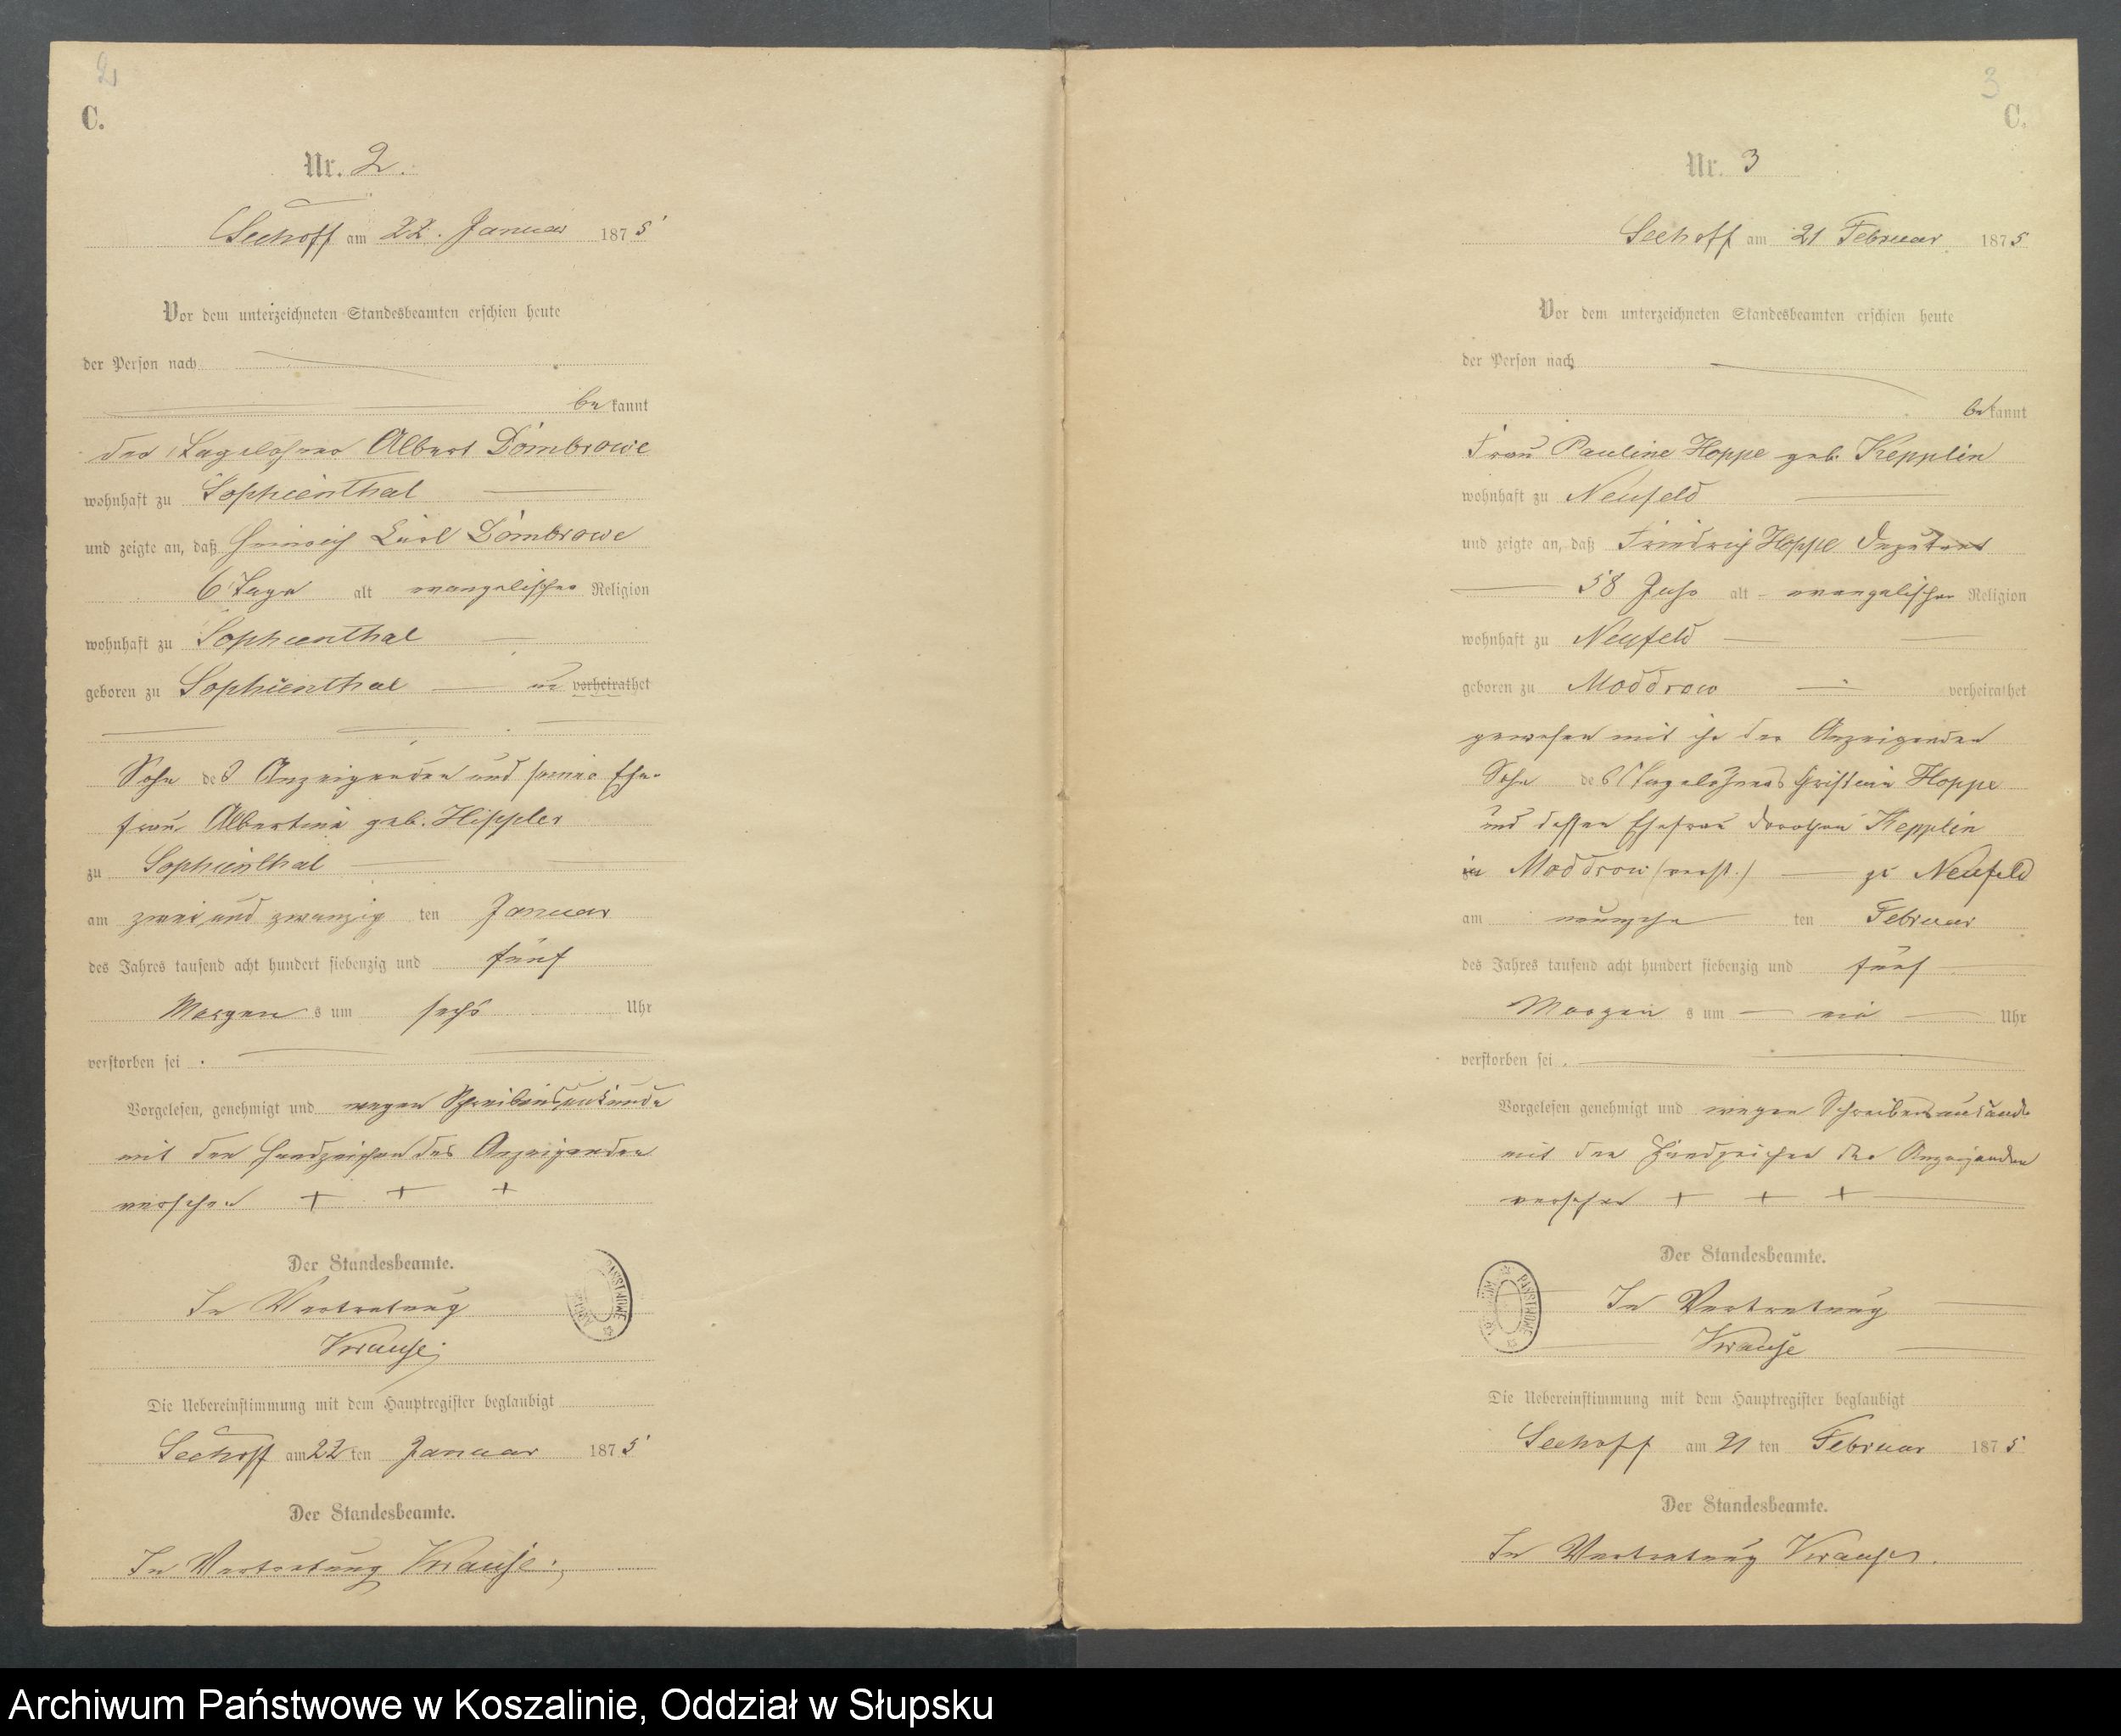 2
C.
Nr. 2.
Seehoff am 22. Januar 1875
Vor dem unterzeichneten Standesbeamten erschien heute
der Person nach
bekannt
der Tagelöhner Albert Dombrowe
wohnhaft zu Sophienthal
und zeigte an, daß Heinrich Carl Dombrowe
6 Tage alt evangelischer Religion
wohnhaft zu Sophienthal
geboren zu Sophienthal un verheirathet
Sohn des Anzeigenden und seiner Ehe-
frau Albertine geb. Hippler
zu Sophienthal
am zwei und zwanzig ten Januar
des Jahres tausend acht hundert siebenzig und fünf
Morgens um sechs Uhr
verstorben sei.
Vorgelesen, genehmigt und wegen Schreibensunkunde
mit den Handzeichen des Anzeigenden
versehen + + +
Der Standesbeamte.
In Vertretung
Krause
Die Uebereinstimmung mit dem Hauptregister beglaubigt
Seehoff am 22 ten Januar 1875
Der Standesbeamte.
In Vertretung Krause
3
C.
Nr. 3
Seehoff am 21 Februar 1875
Vor dem unterzeichneten Standesbeamten erschien heute
der Person nach
bekannt
Frau Pauline Hoppe geb. Kepplin
wohnhaft zu Neufeld
und zeigte an, daß Friedrich Hoppe Deputant
58 Jahr alt evangelischer Religion
wohnhaft zu Neufeld
geboren zu Moddrow verheirathet
gewesen mit ihr der Anzeigenden
Sohn des Tagelöhners Hoppe
und dessen Ehefrau Dorothea Kepplin
in Moddrow (verst.) zu Neufeld
am neunzehn ten Februar
des Jahres tausend acht hundert siebenzig und fünf
Morgens um ein Uhr
verstorben sei.
Vorgelesen genehmigt und wegen Schreibensunkunde
mit den Handzeichen der Anzeigenden
versehen + + +
Der Standesbeamte.
In Vertretung
Krause
Die Uebereinstimmung mit dem Hauptregister beglaubigt
Seehoff am 21 ten Februar 1875
Der Standesbeamte.
In Vertretung Krause.
Archiwum Państwowe w Koszalinie, Oddział w Słupsku